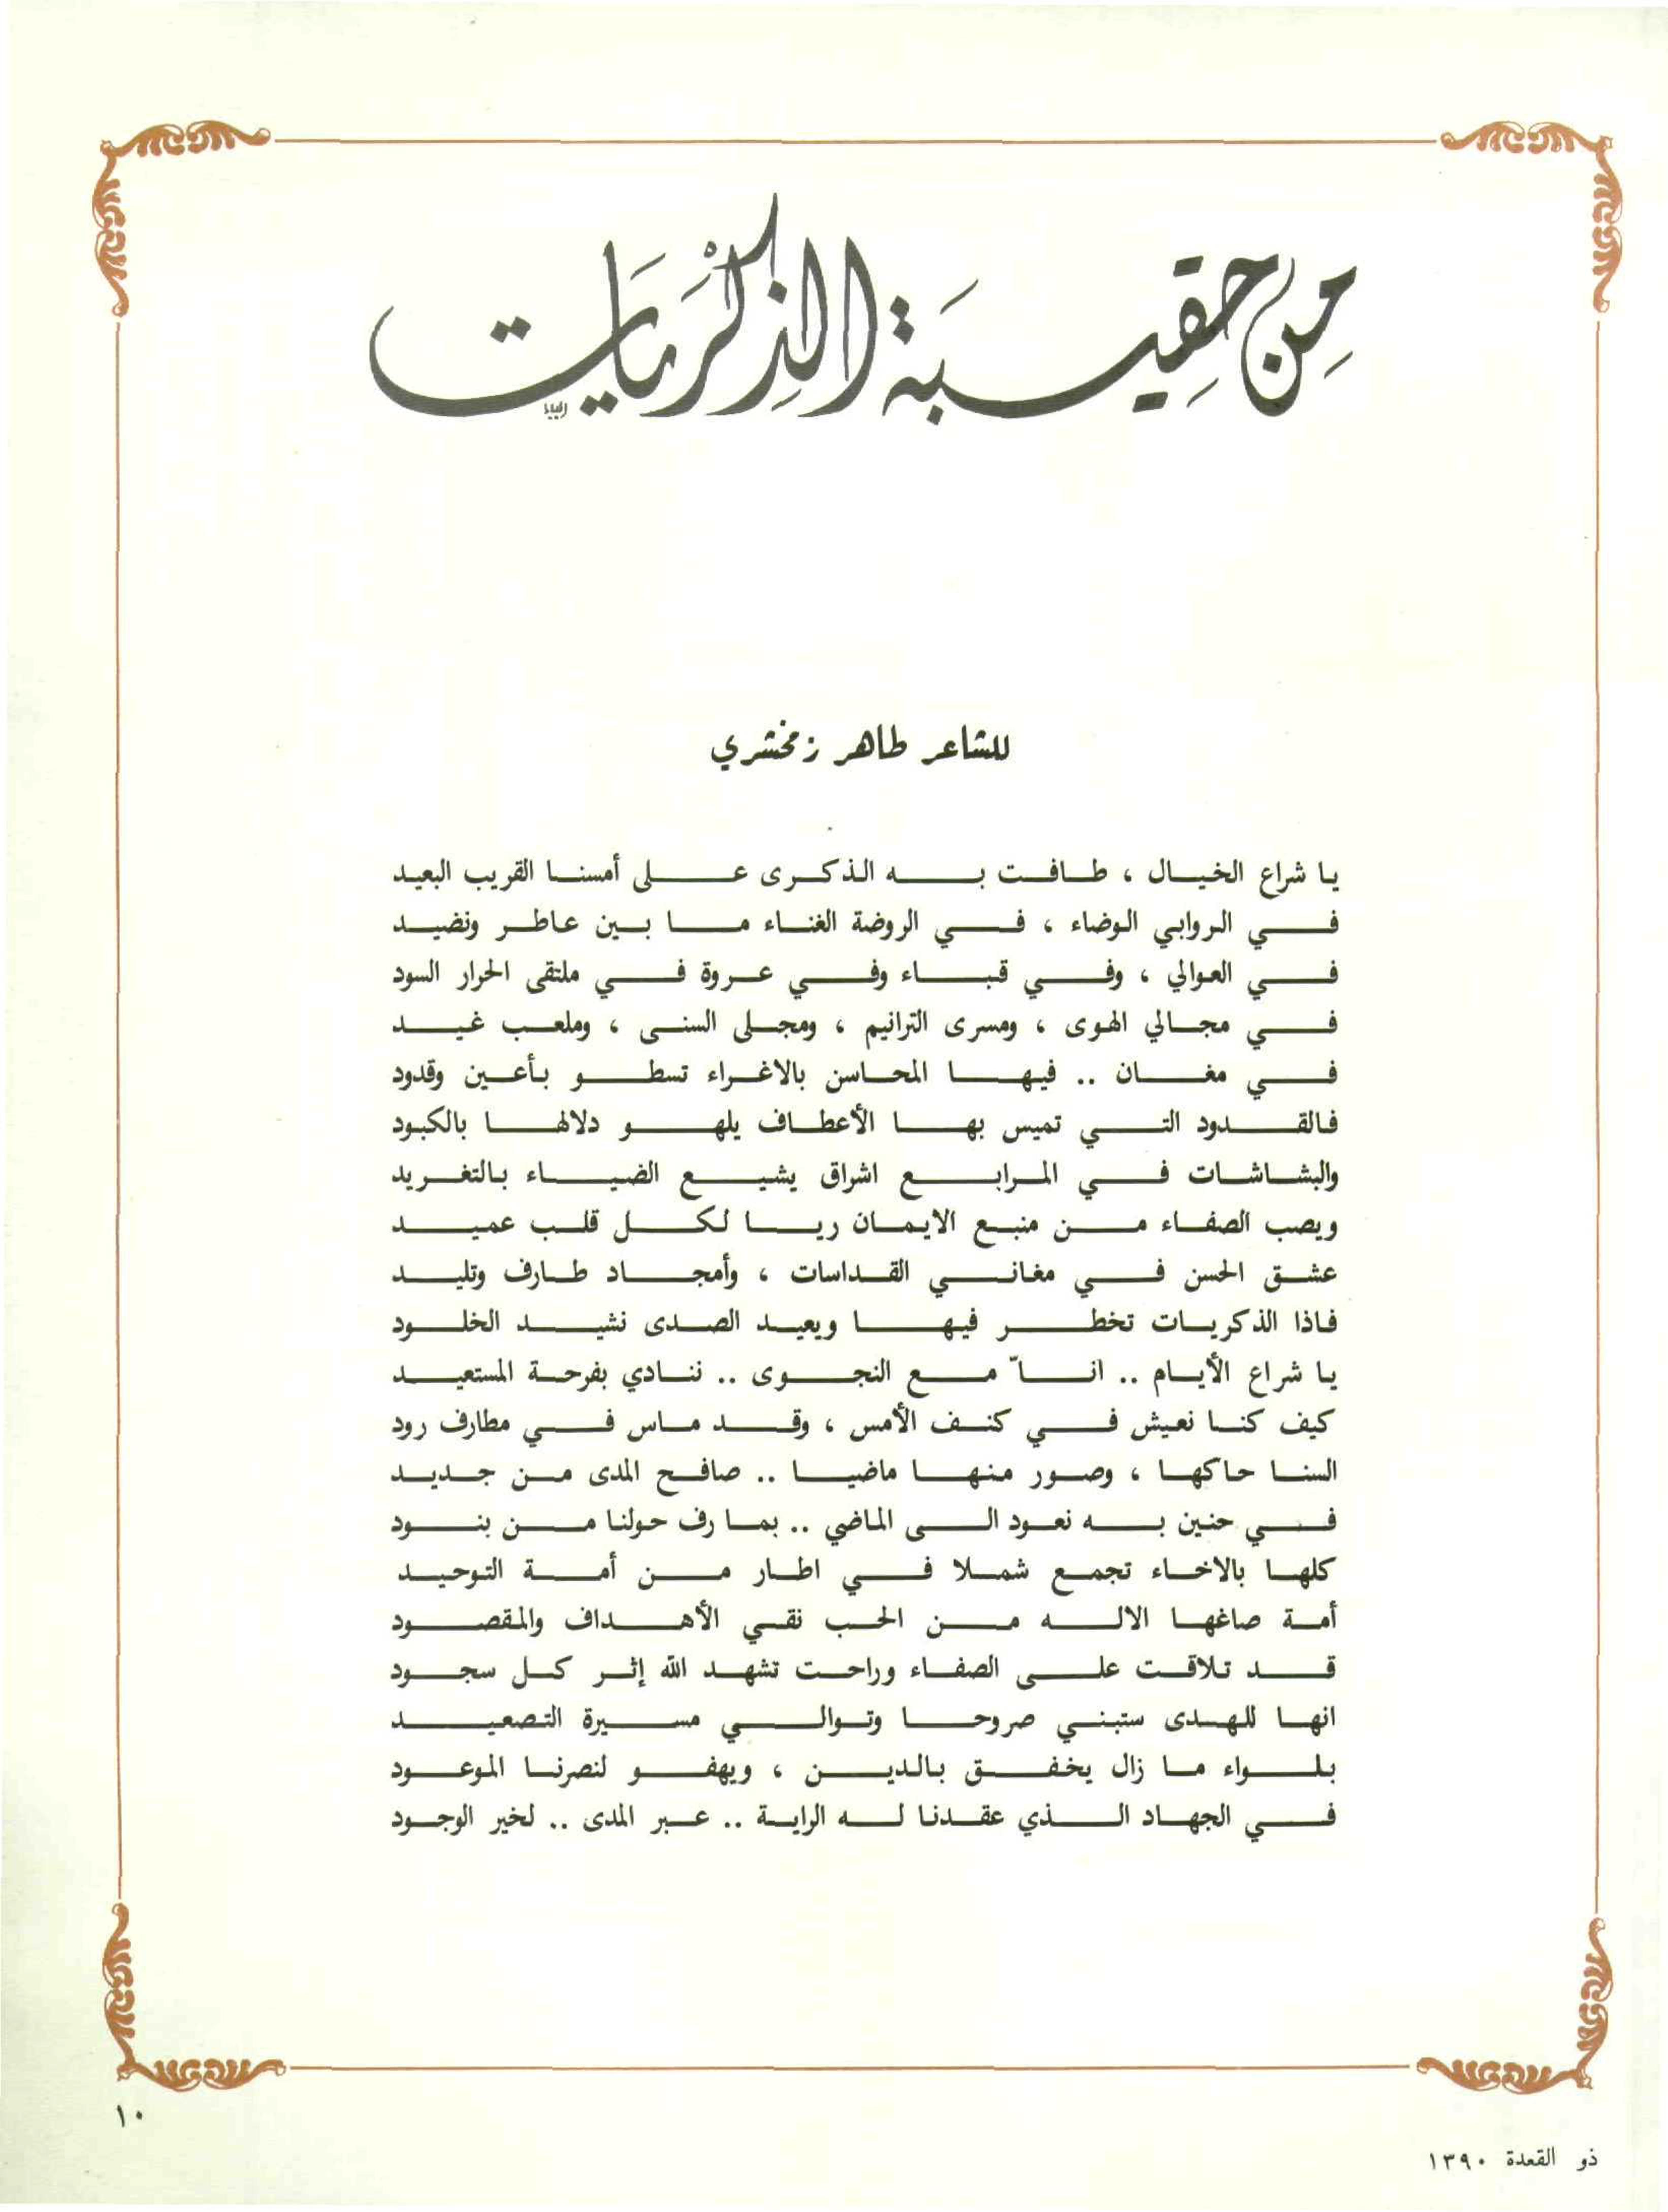 من حقيبة الذكريات
للشاعر طاهر زمخشري
يا شراع الخيال ، طافت به الذكرى على أمسنا القريب البعيد
في الروابي الوضاء ، في الروضة الغناء ما بين عاطر ونضيد
في العوالي ، وفي قباء وفي عروة في ملتقى الحرار السود
في مجالي الهوى ، ومسرى الترانيم ، ومجلى السنى ، وملعب غيد
في مغان .. فيها المحاسن بالاغراء تسطو بأعين وقدود
فالقدود التي تميس بها الأعطاف يلهو دلالها بالكبود
والبشاشات في المرابع اشراق يشيع الضياء بالتغريد
ويصب الصفاء من منبع الايمان ريا لكل قلب عميد
عشق الحسن في مغاني القداسات ، وأمجاد طارف وتليد
فاذا الذكريات تخطر فيها ويعيد الصدى نشيد الخلود
يا شراع الأيام .. اناّ مع النجوى .. ننادي بفرحة المستعيد
كيف كنا نعيش في كنف الأمس ، وقد ماس في مطارف رود
السنا حاكها ، وصور منها ماضيا .. صافح المدى من جديد
في حنين به نعود الى الماضي .. بما رف حولنا من بنود
كلها بالاخاء تجمع شملا في اطار من أمة التوحيد
أمة صاغها الاله من الحب نقي الأهداف والمقصود
قد تلاقت على الصفاء وراحت تشهد الله إثر كل سجود
انها للهدى ستبني صروحا وتوالي مسيرة التصعيد
بلواء ما زال يخفق بالدين ، ويهفو لنصرنا الموعود
في الجهاد الذي عقدنا له الراية .. عبر المدى .. لخير الوجود
١٠
ذو القعدة ١٣٩٠